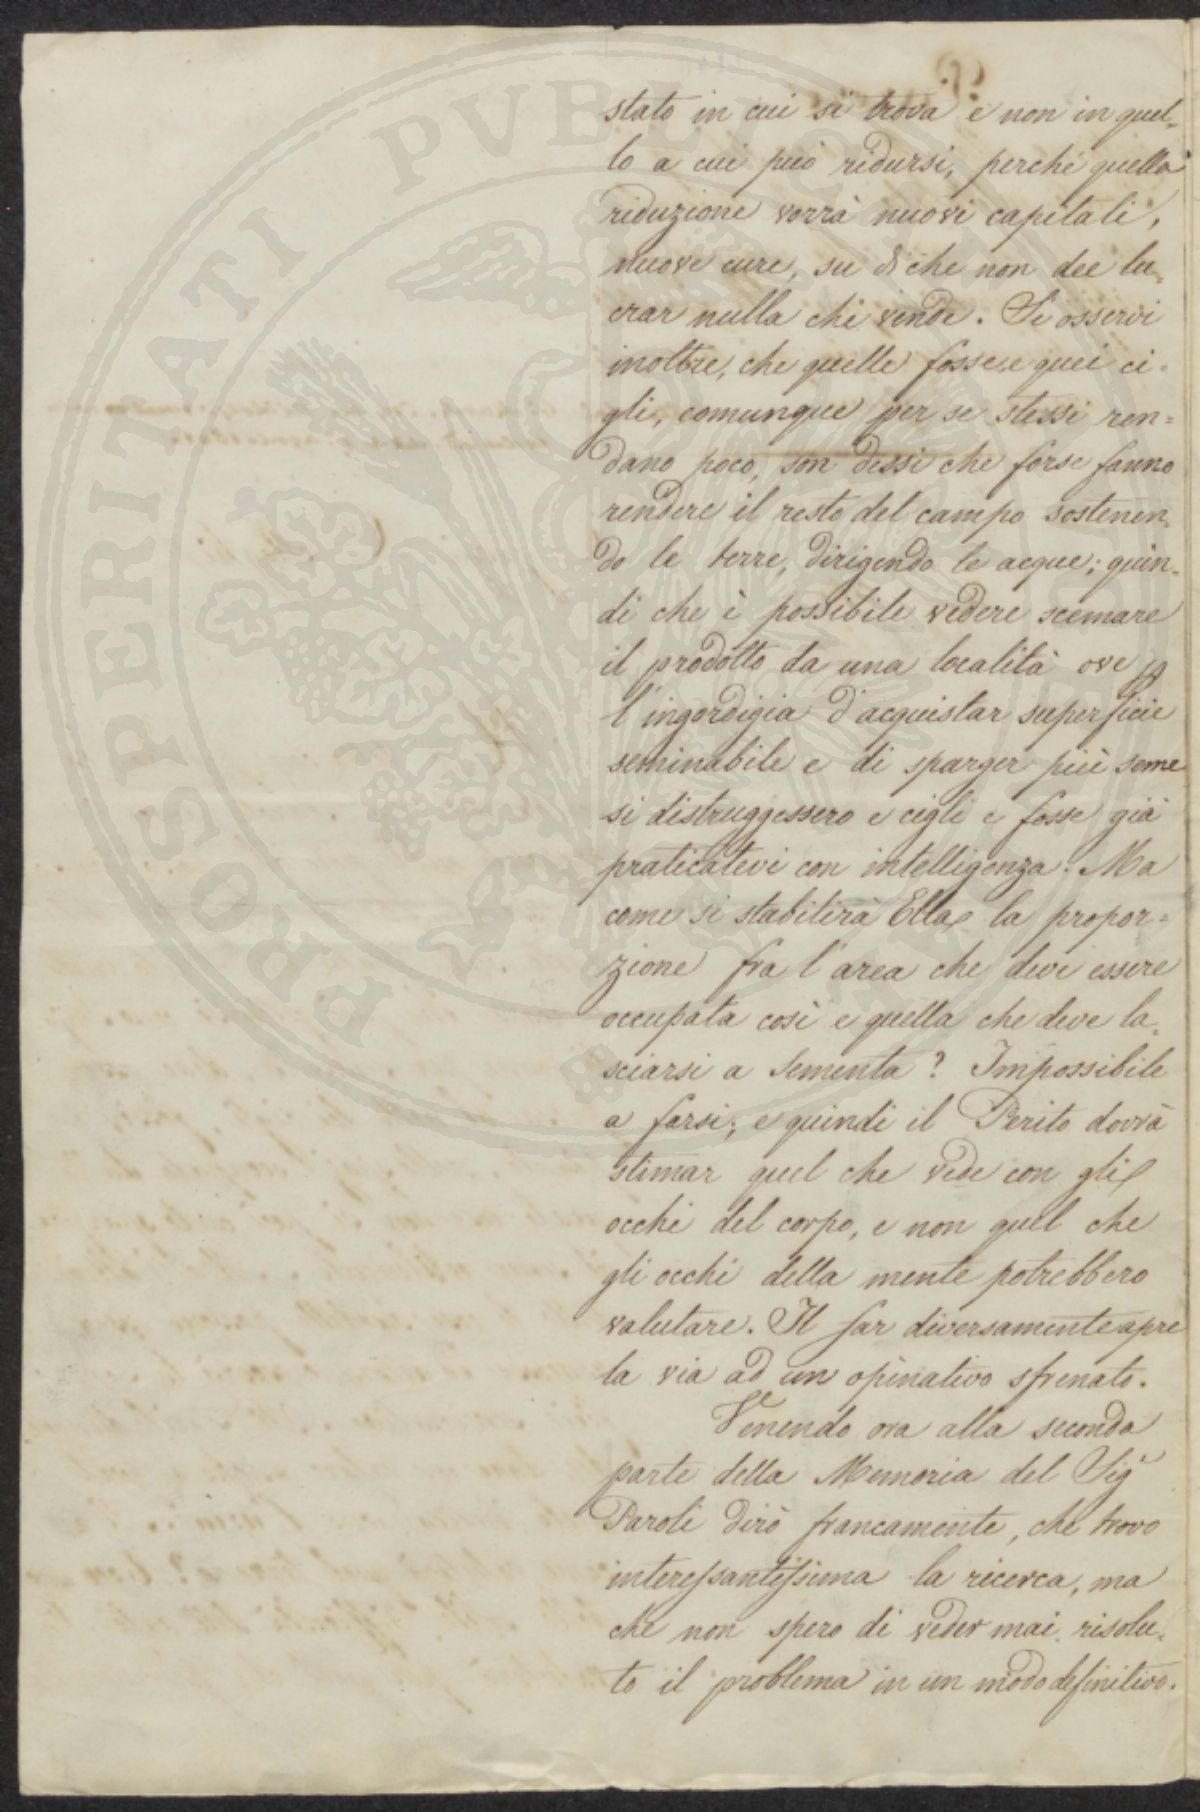 stato in cui si trova e non in quel=
lo a cui può ridursi, perchè quella
riduzione vorrà nuovi capitali,
nuove cure, su di che non dee lu=
crar nulla chi vende. Si osservi
inoltre, che quelle fosse, e quei ci=
gli, comunque per se stessi ren=
dano poco, son dessi che forse fanno
rendere il resto del campo sostenen=
do le terre, dirigendo le acque; quin=
di che è possibile vedere scemare
il prodotto da una località ove p
l'ingordigia d'acquistar superficie
seminabile e di sparger più seme
si distruggessero e cigli e fosse già
praticatevi con intelligenza. Ma
come si stabilirà Ella la propor=
zione fra l'area che deve essere
occupata così e quella che deve la=
sciarsi a sementa? Impossibile
a farsi; e quindi il Perito dovrà
stimar quel che vede con gli
occhi del corpo, e non quel che
gli occhi della mente potrebbero
valutare. Il far diversamente apre
la via ad un opinativo sfrenato.
Venendo ora alla seconda
parte della Memoria del Sigr
Paroli dirò francamente, che trovo
interessantissima la ricerca, ma
che non spero di veder mai risolu=
to il problema in un modo definitivo.
PROSPERITATI PVBLICAE